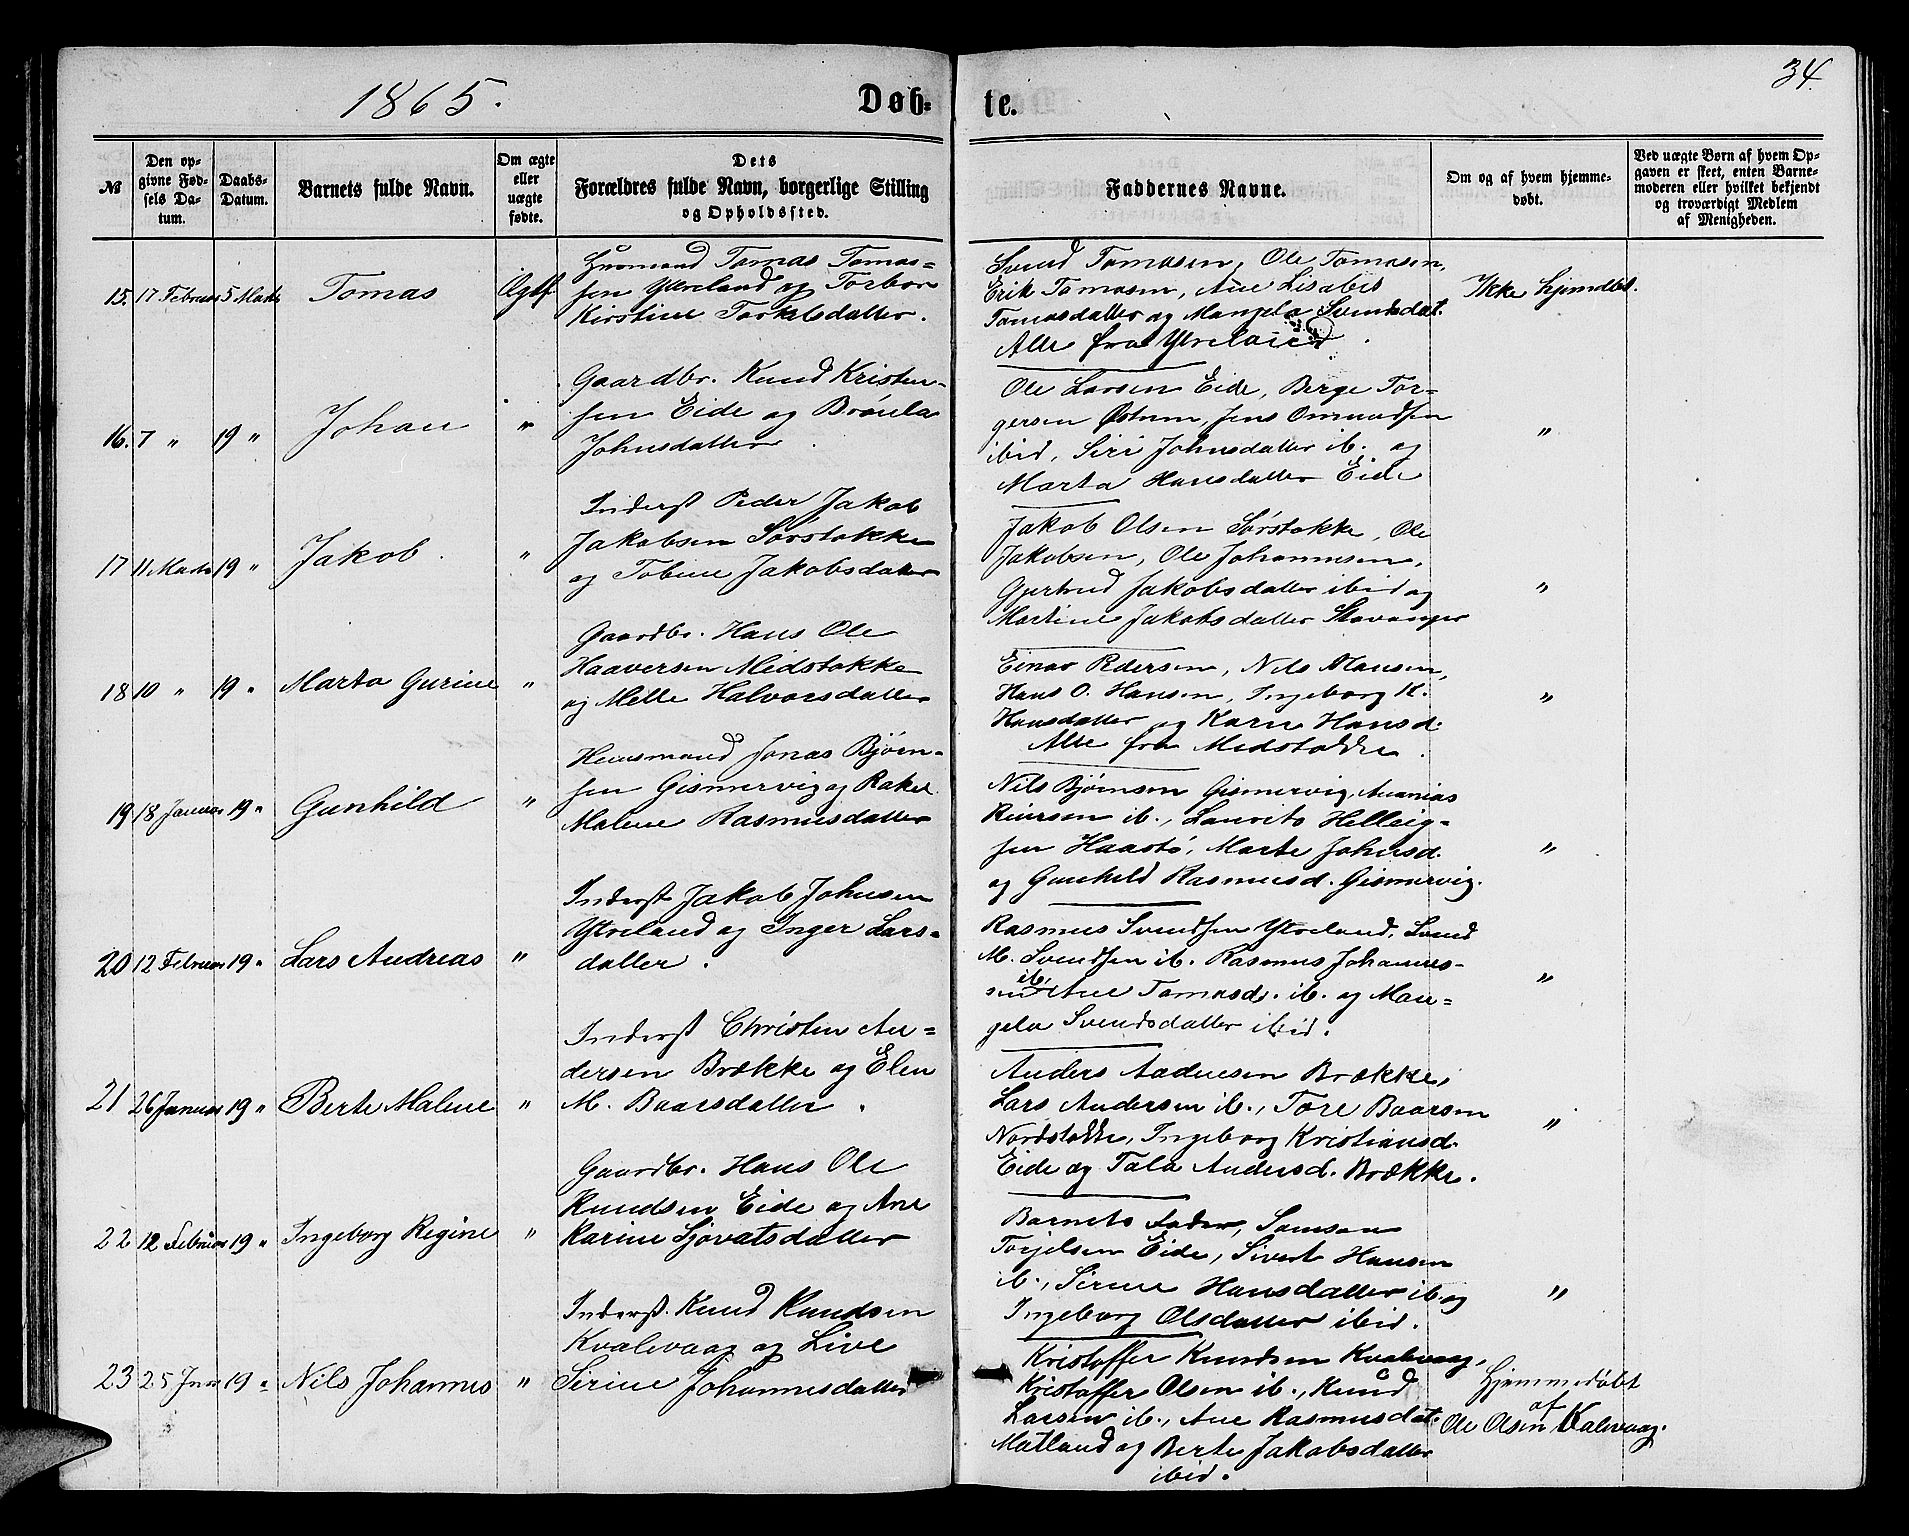 1865.
Døb-
te.
34.
№
Den op-
givne Fød-
sels Da-
tum.
Daabs-
Datum.
Barnets fulde Navn.
Om ægte
eller
uægte
fødte.
Dets
Forældres fulde Navn, borgerlige Stilling
og Opholdssted.
Faddernes Navne.
Om og af hvem hjemme-
døbt.
Ved uægte Børn af hvem Op-
gaven er skeet, enten Barne-
moderen eller hvilket bekjendt
og troværdigt Medlem
af Menigheden.
15. 17 Februar 5 Marts Tomas
Husmand Tomas Tomas-
sen Ytreland og Torbor
Kirstine Torkelsdatter.
Svend Tomasen, Ole Tomasen,
Erik Tomasen, Ane Lisabet
Tomasdatter og Mangela Svendsdat.
Alle fra Ytreland.
Ikke hjemdøbt.
16. 7 " 19 " Johan "
Gaardbr. Knud Kristen-
sen Eide og Brønla
Johnsdatter.
Ole Larsen Eide, Berge Tor-
gersen Østrem, Jens Omundsen
ibid, Siri Johnsdatter ib. og
Marta Hansdatter Eide
"
17 11 Marts 19 " Jakob. "
Inderst Peder Jakob
Jakobsen Sørstokke
og Tobine Jakobsdatter
Jakob Olsen Sørstokke, Ole
Jakobsen, Ole Johannesen,
Gjertrud Jakobsdatter ibid og
Martine Jakobsdatter Stavanger
"
18 10 " 19 " Marta Gurine "
Gaardbr. Hans Ole
Haaversen Midstokke
og Mette Halvorsdatter
Einar Pedersen, Nils Hansen,
Hans O. Hansen, Ingeborg H.
Hansdatter og Karn Hansd.
Alle fra Midstokke.
"
19 18 Januar 19 " Gunhild "
Huusmand Jonas Bjørn-
sen Gismervig og Rakel
Malene Rasmusdatter
Nils Bjørnsen Gismervig, Ananias
Reiersen ib., Laurits Helleig-
sen Haastø, Marte Johnsd.
og Gunhild Rasmusd. Gismervig.
"
20 12 Februar 19 " Lars Andreas "
Inderst Jakob Johnsen
Ytreland og Inger Lars-
datter.
Rasmus Svendsen Ytreland, Svend
M. Svendsen ib. Rasmus Johannes-
sen ib. Ane Tomasd. ib. og Man-
gela Svendsdatter ibid.
"
21 26 Januar 19 " Berte Malene "
Inderst Christen An-
dersen Brække og Elen
M. Baarsdatter.
Anders Andersen Brække,
Lars Andersen ib., Tore Baarsen
Nordstokke, Ingeborg Kristiansd.
Eide og Tala Andersd. Brække.
"
22 12 Februar 19 " Ingeborg Regine "
Gaardbr. Hans Ole
Knudsen Eide og Ane
Karine Sjovatsdatter
Barnets Fader, Samson
Torjelsen Eide, Sivert Hansen
ib., Sirine Hansdatter ib. og
Ingeborg Olsdatter ibid.
"
23 25 Janr 19 " Nils Johannes "
Inderst. Knud Knudsen
Kvalevaag og Live
Sirine Johannesdatter
Kristoffer Knudsen Kvalevaag,
Kristoffer Olsen ib., Knud
Larsen ib., Ane Rasmusdat.
Matland og Berte Jakobsdatter
ibid.
Hjemmedøbt
af
Ole Olsen Kvalevaag.